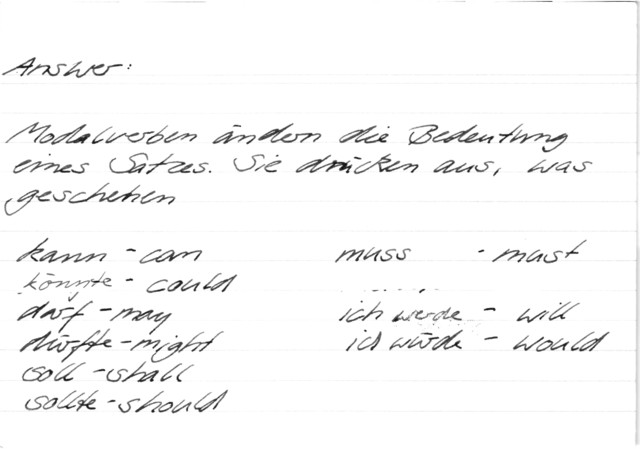 Answer:
Modalverben ändern die Bedeutung
eines Satzes. Sie drücken aus, was
geschehen
kann - can muss - must
könnte - could
darf - may ich werde - will
dürfte - might ich würde - would
soll - shall
sollte - should